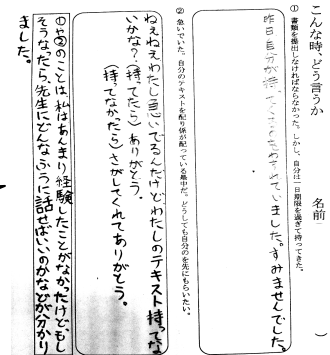 こんな時、どう言うか
名前
)
① 書類を提出しなければならなかった。しかし、自分は一日期限を過ぎて持ってきた。
昨日自分が
わすれていました。すみませんでした。
② 急いでいた。自分のテキストを配り係が配っている最中だ。どうしても自分のを先にもらいたい。
ねえねえわたし急いでるんだけどわたしのテキスト持ったな
いかな?(持ってたら)ありがとう。
(持ってなかったら)さがしてくれてありがとう。
①や②のことは、私はあんまり経験したことがなかったけど、もし
そうなったら、先生にどんなふうに話せばいいのかなどが分かり
ました。